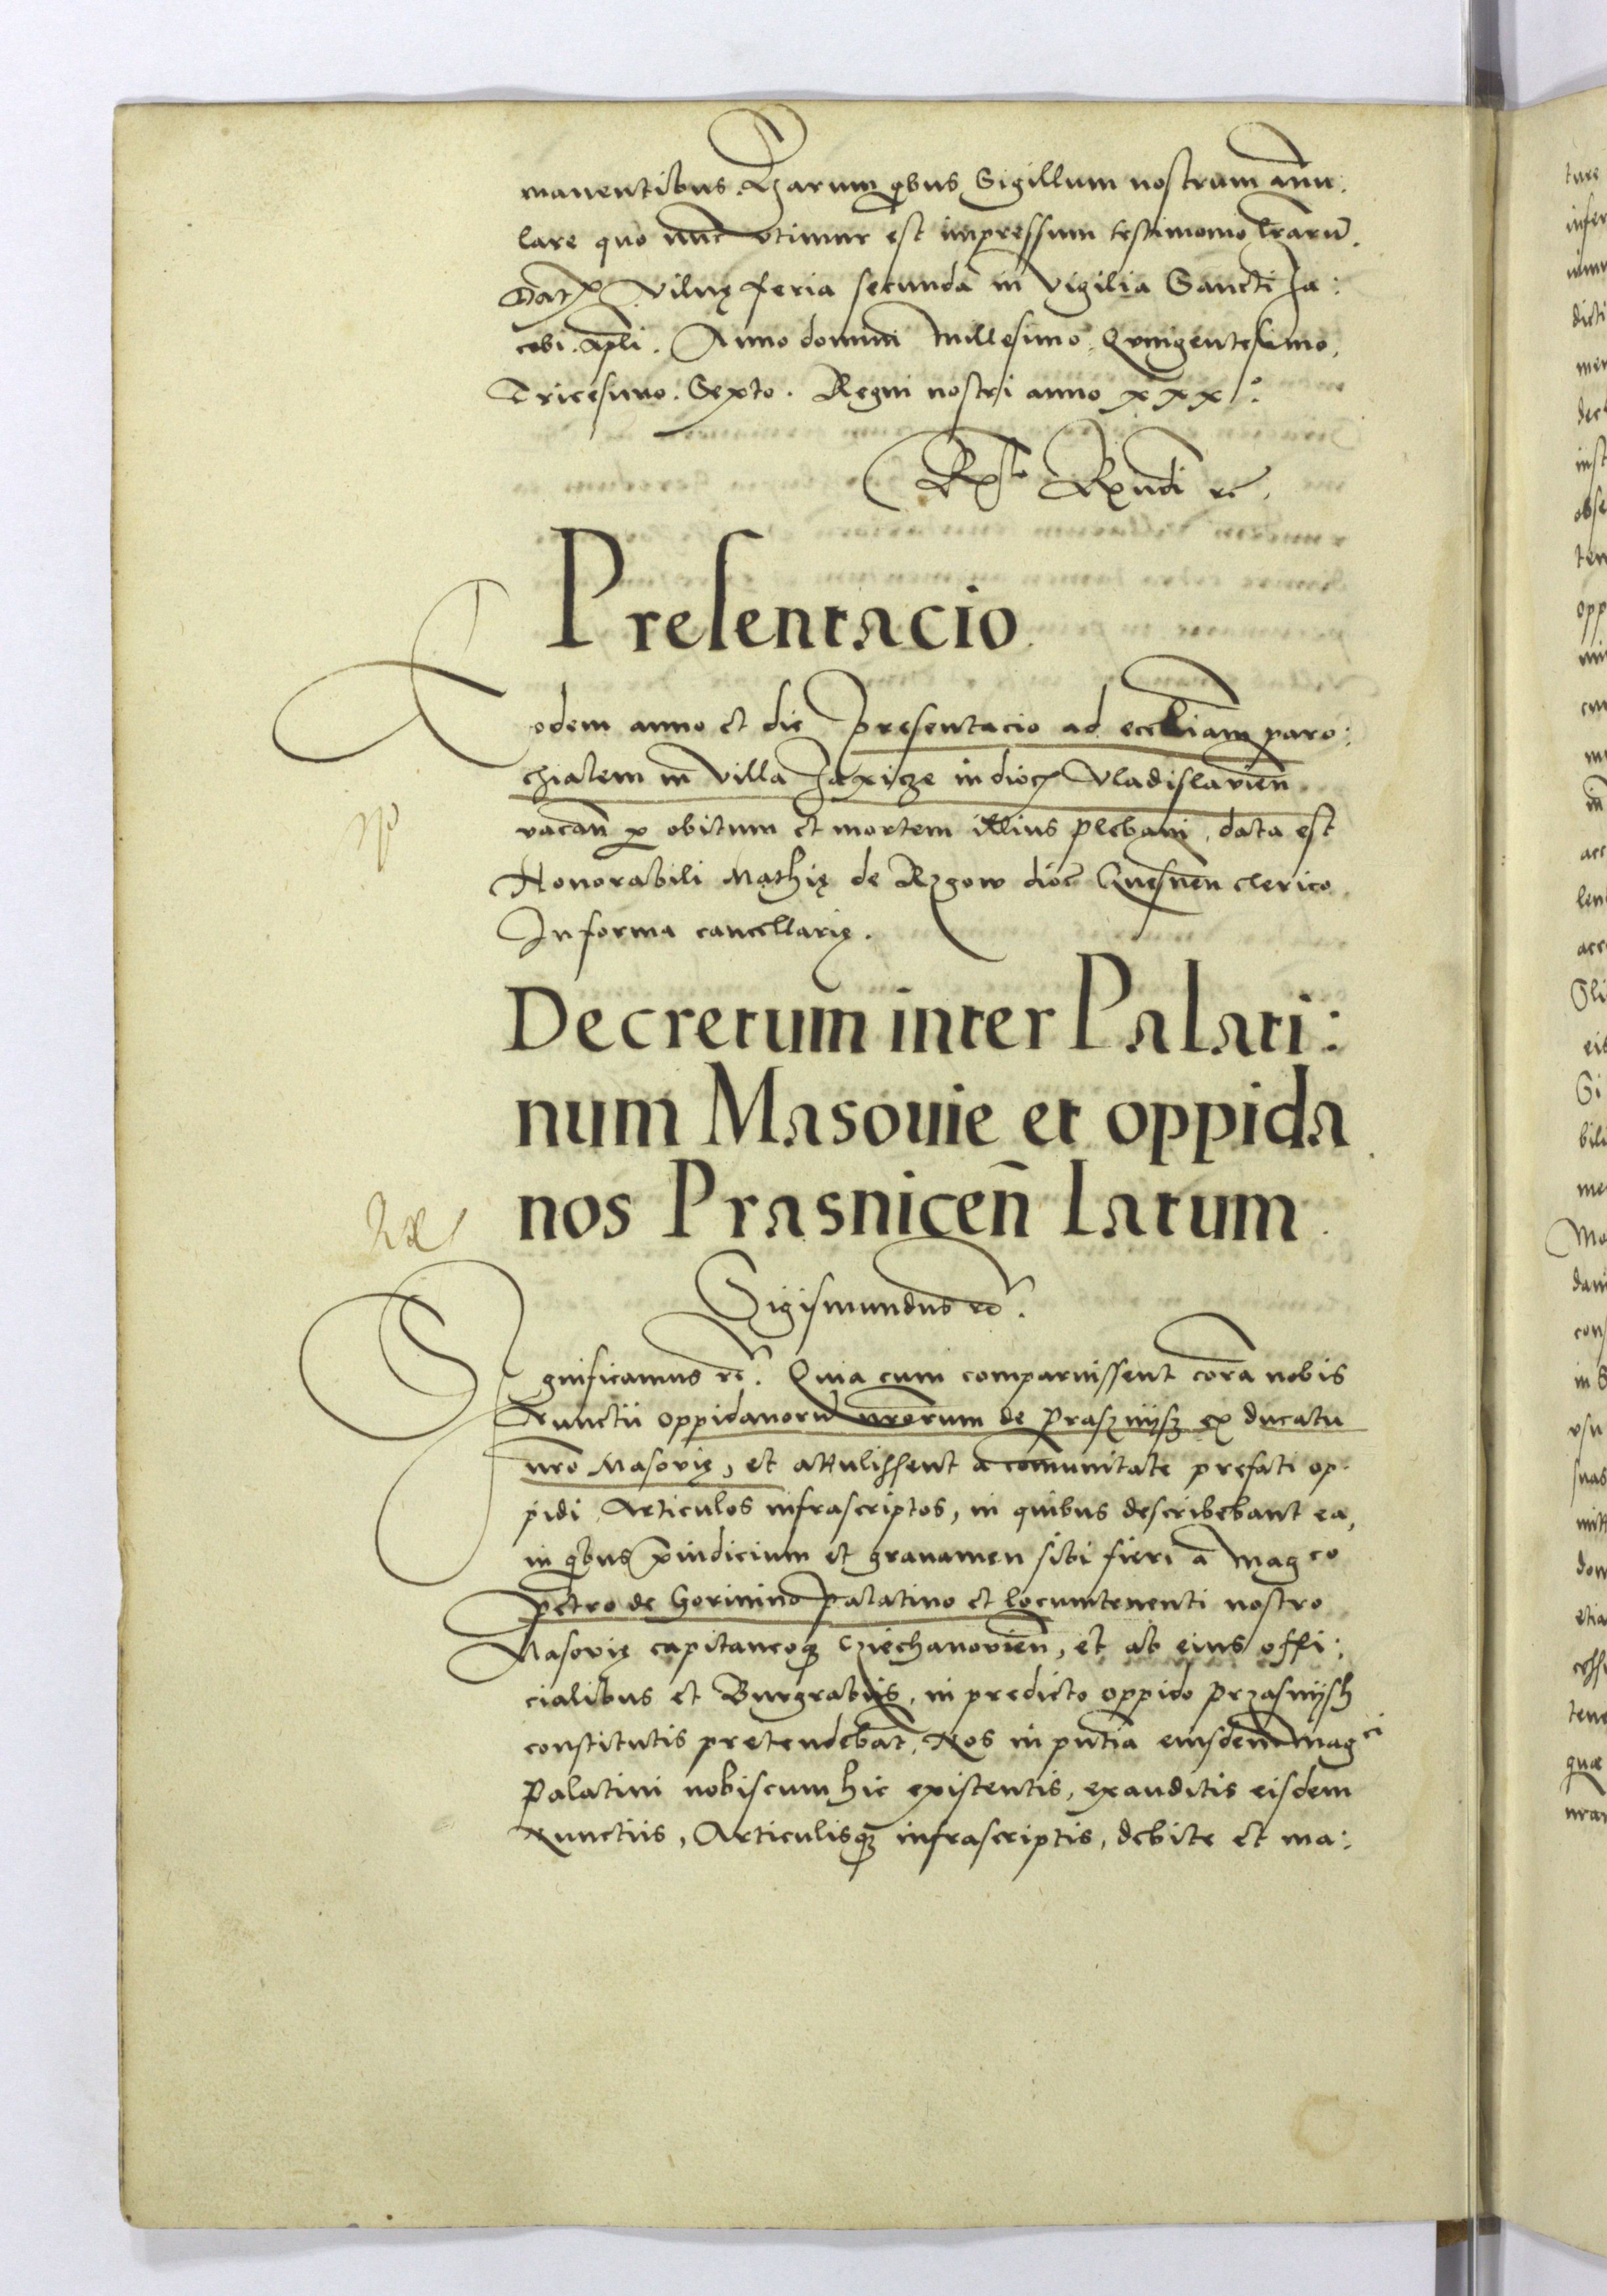 manentibus. Harum qbus Sigillum nostrum annu:
lare quo nunc utimur est impressum testimonio lrarū.
Dat Vilnę feria secunda in vigilia Sancti Ja:
cobi. Apli. Anno domini Millesimo. Quingentesimo.
Tricesimo. Sexto. Regni nostri anno xxx°.
Presentacio.
Eodem anno et die presentacio ad eccliam paro:
chialem in villa Jaxicze in dioc Vladislavien̄
vacan̄ p obitum et mortem illius plebani, data est
Honorabili Mathię de Rzgow dioc Gnesnen̄ clerico
In forma cancellarię.
Decretum inter Palati:
num Masouie et oppida
nos Prasnicen̄ latum.
Sigismundus etc.
Significamus etc. Quia cum comparuissent corā nobis
Nunctii oppidanorū nrorum de Prasznijsz ex ducatu
nro Masovię, et attulissent a comunitate prefati op:
pidi Articulos infrascriptos, in quibus describebant ea,
in qbus piudicium et grauamen sibi fieri a Magco
Petro de Gorinino Palatino et locumtenenti nostro
Masovię capitaneoq Cziechanovien̄, et ab eius offi:
cialibus et Burgrabiis, in predicto oppido Przasnijsh
constitutis pretendebāt. Nos in pn̄tia eiusdem Magci
Palatini nobiscum hic existentis, exauditis eisdem
Nunctiis, Articulisq infrascriptis, debite et ma: